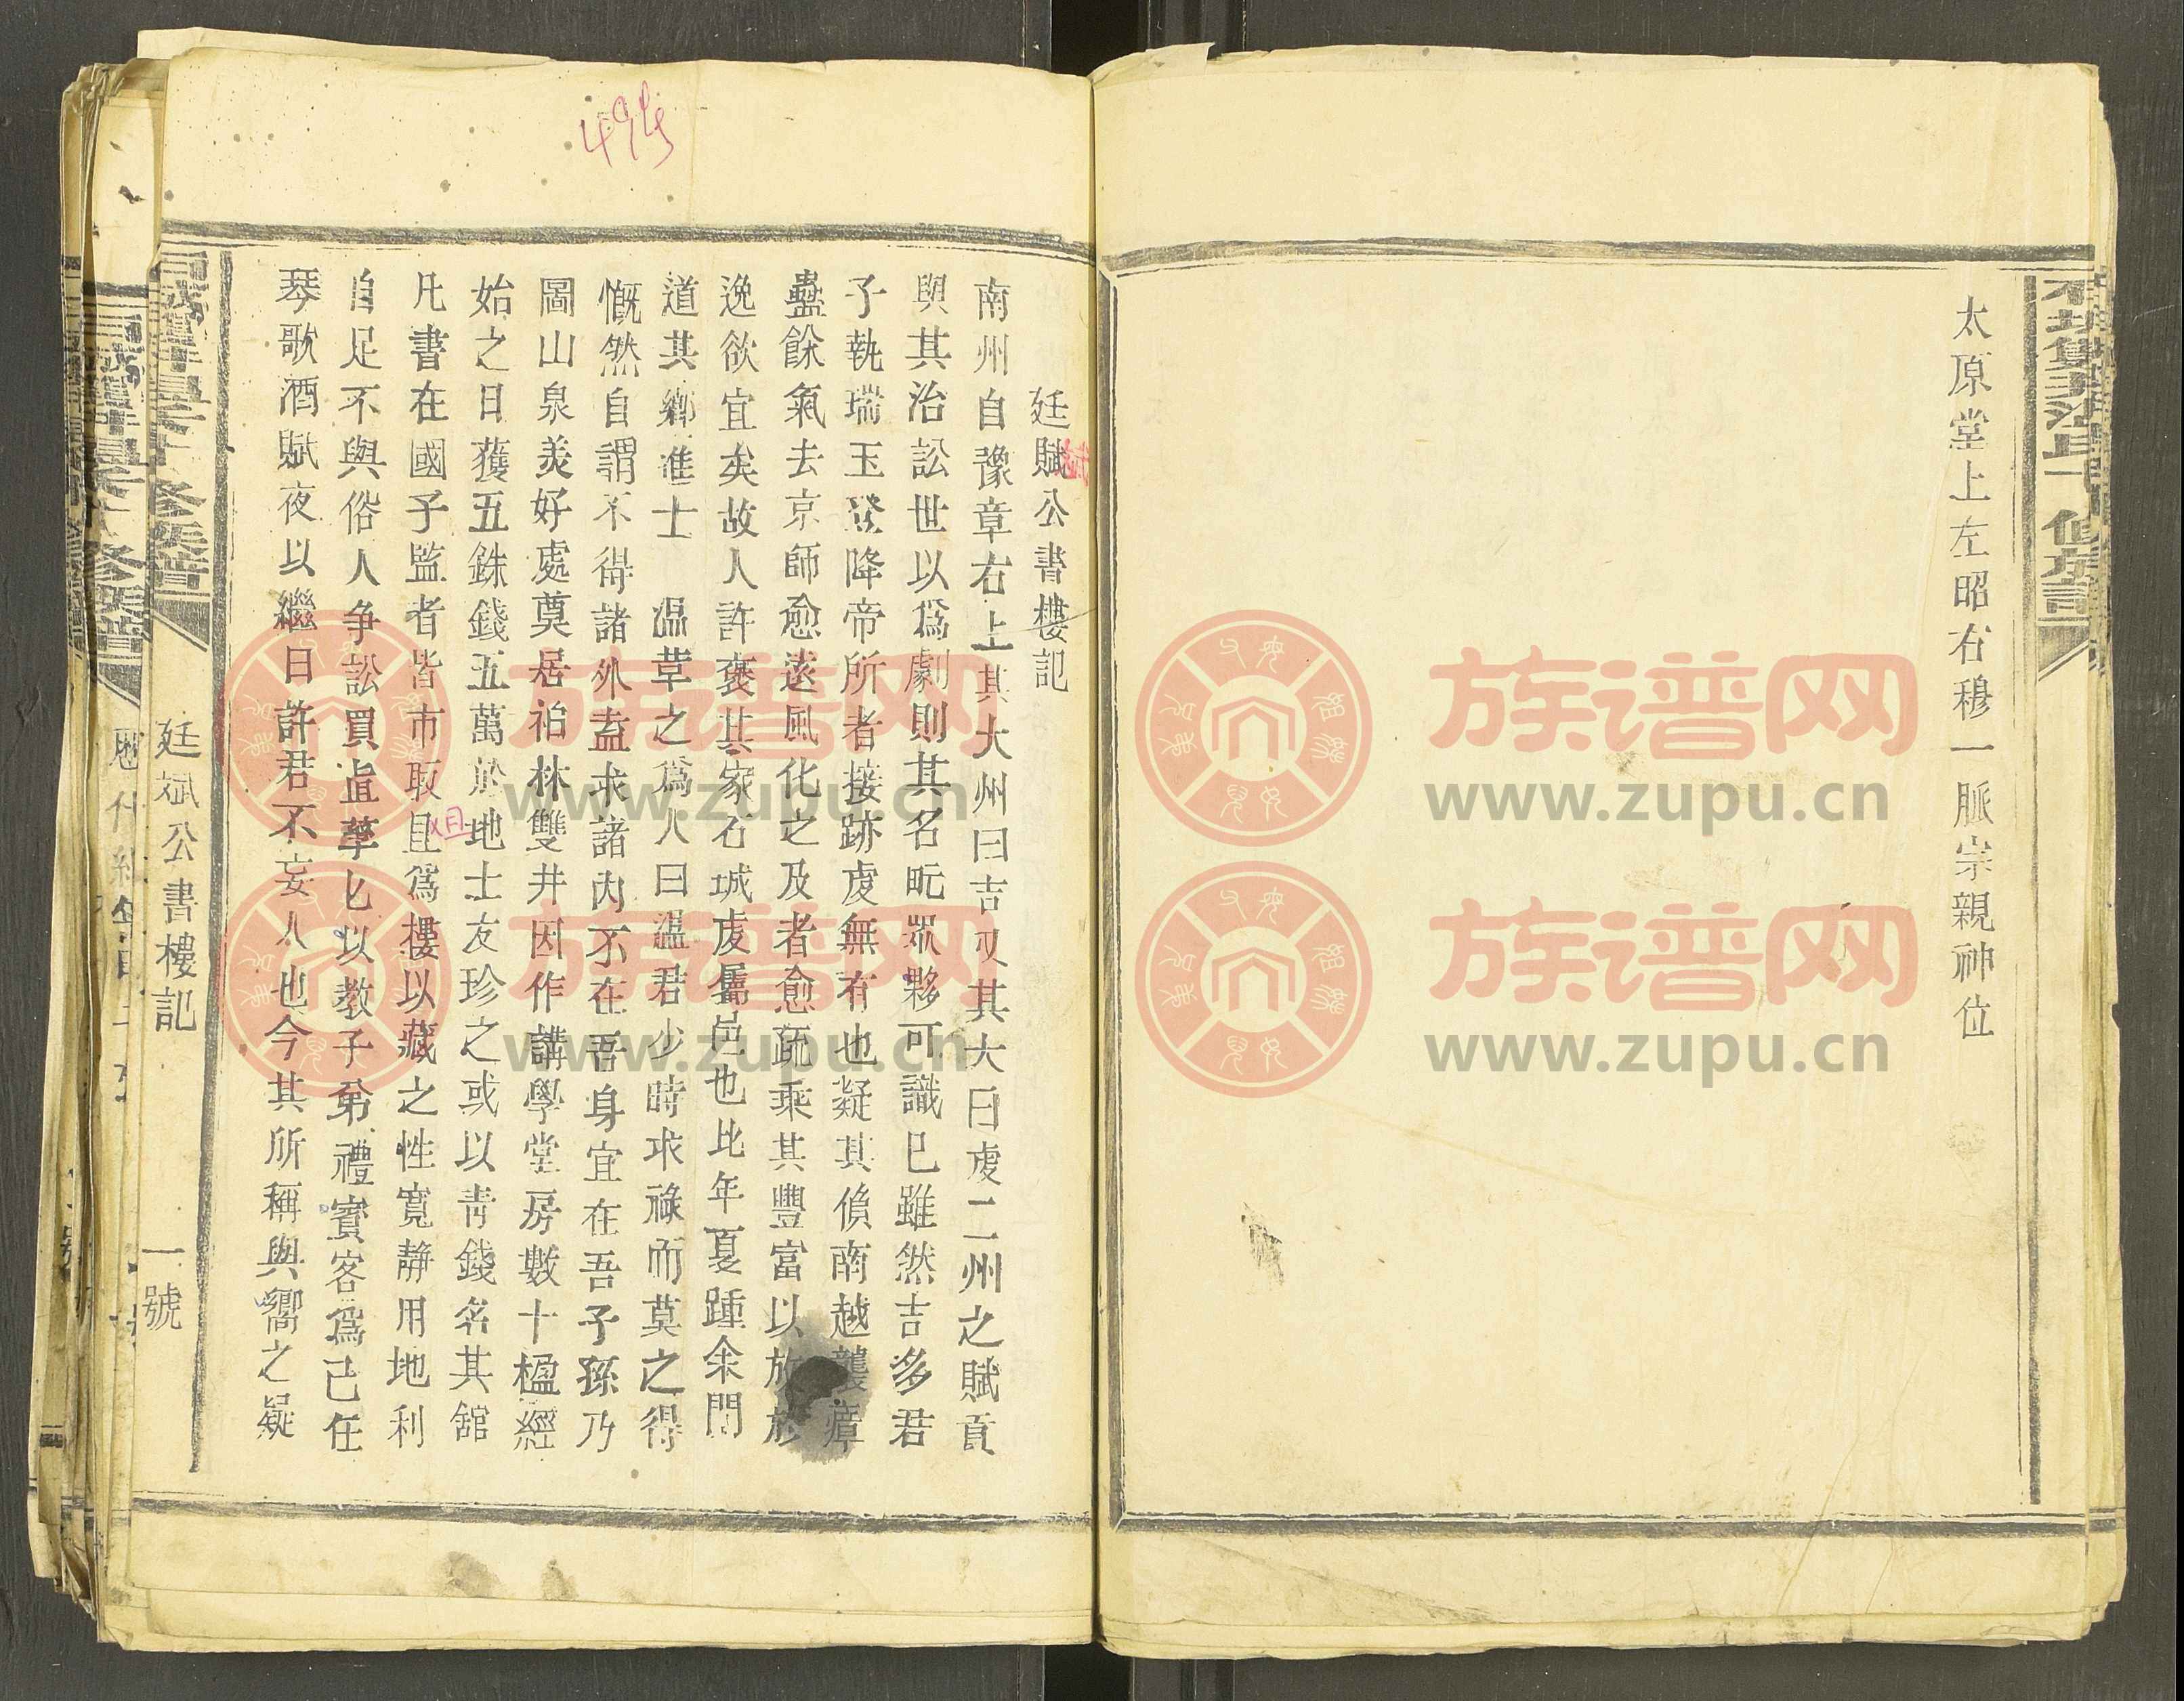 太原堂上左昭右穆一脈宗親神位
廷賦公書樓記
南州自豫章右上其大州曰吉又其大曰虔二州之賦貢
與其治訟世以爲劇則其名 眾夥可識已雖然吉多君
子執瑞玉登降帝所者接跡虔無有也疑其 南越襲瘴
蠱餘氣去京師愈遠風化之及者愈疏乘其豐富以放於
逸欲宜矣故人許褒其家石城虔屬邑也比年夏踵余門
道其鄉進士 溫革之爲人曰溫君少時求祿而莫之得
慨然自謂不得諸外盍求諸內不在吾身宜在吾子孫乃
圖山泉美好處奠居 林雙井因作講學堂房數十楹經
始之日獲五銖錢五萬於地士友珍之或以青錢名其舘
凡書在國子監者皆市取且爲樓以藏之性寬靜用地利
自足不與俗人争訟買 葦 以教子弟禮賓客爲己任
琴歌酒賦夜以繼日許君不妄人也今其所稱與嚮之疑
廷斌公書樓記
一號
族谱网
www.zupu.cn
族谱网
www.zupu.cn
族谱网
www.zupu.cn
族谱网
www.zupu.cn